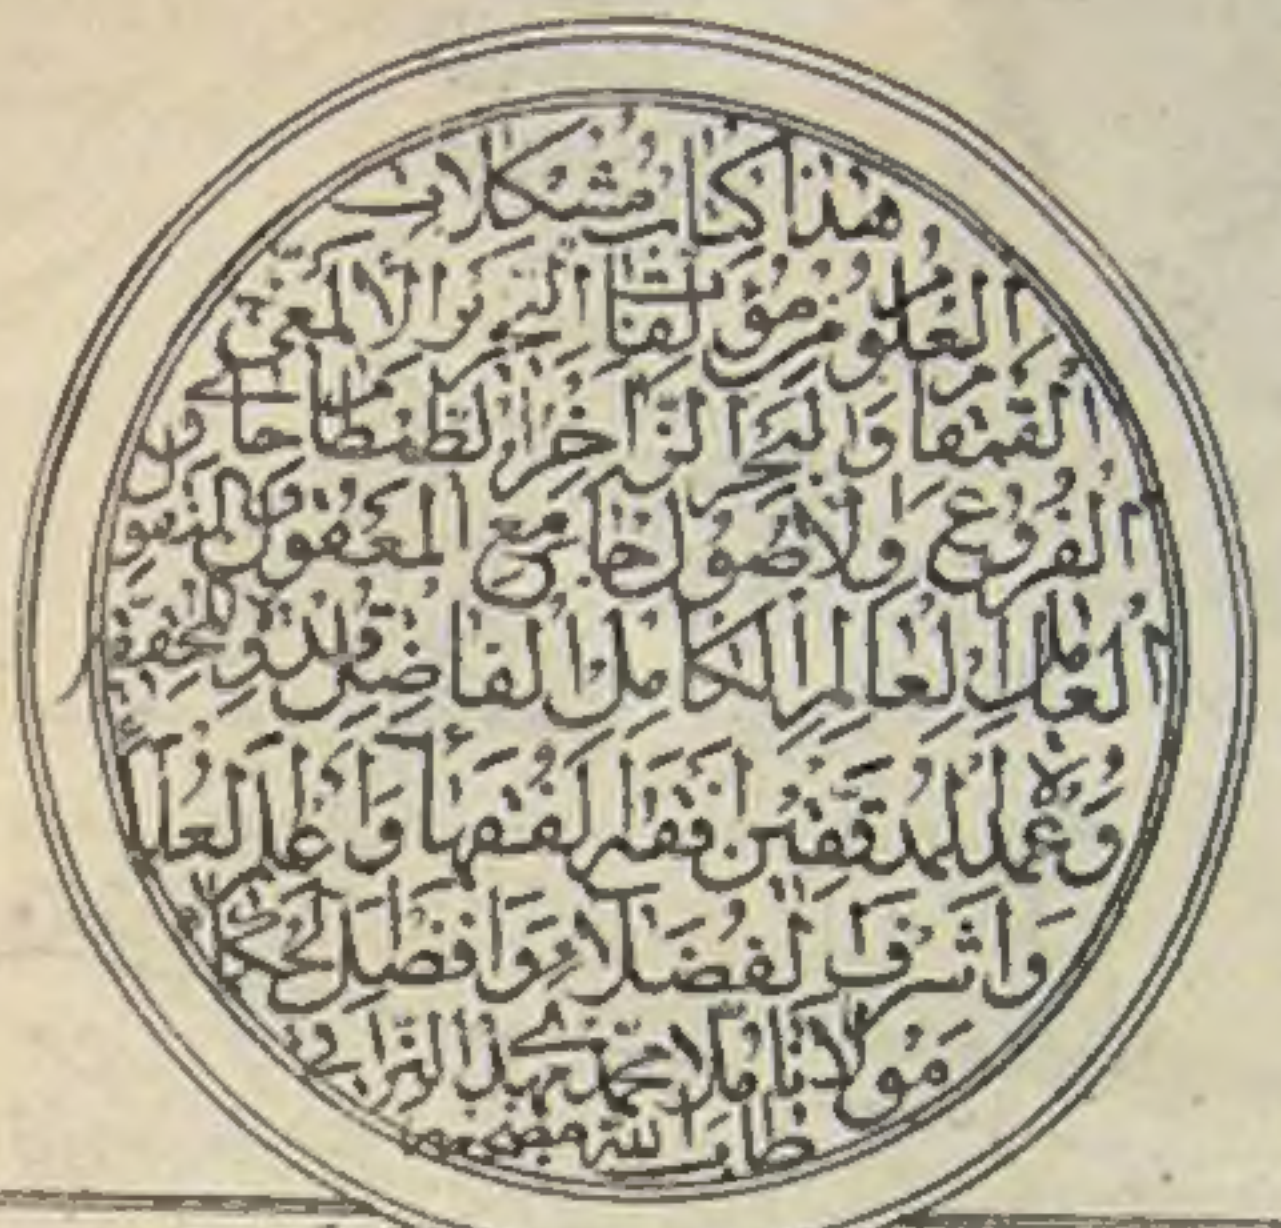 هٰذَا كِتَابُ مُشْكِلَاتِ
الْعُلُومِ مِنْ مُؤَلَّفَاتِ النِّحْرِيرِ الْأَلْمَعِيِّ
الْقَمْقَامِ وَالْبَحْرِ الزَّاخِرِ الطَّمْطَامِ حَاوِي
الْفُرُوعِ وَالْأُصُولِ جَامِعِ الْمَعْقُولِ
الْعَامِلِ الْعَالِمِ الْكَامِلِ الْفَاضِلِ قُدْوَةِ
وَعُمْدَةِ الْمُدَقِّقِينَ أَفْقَهِ الْفُقَهَاءِ وَأَعْلَمِ الْعُلَمَاءِ
وَأَشْرَفِ الْفُضَلَاءِ وَأَفْضَلِ الْحُكَمَاءِ
مَوْلَانَا مُلَّا مُحَمَّد مَهْدِي النَّرَاقِي
طَابَ اللّٰهُ مضجعه